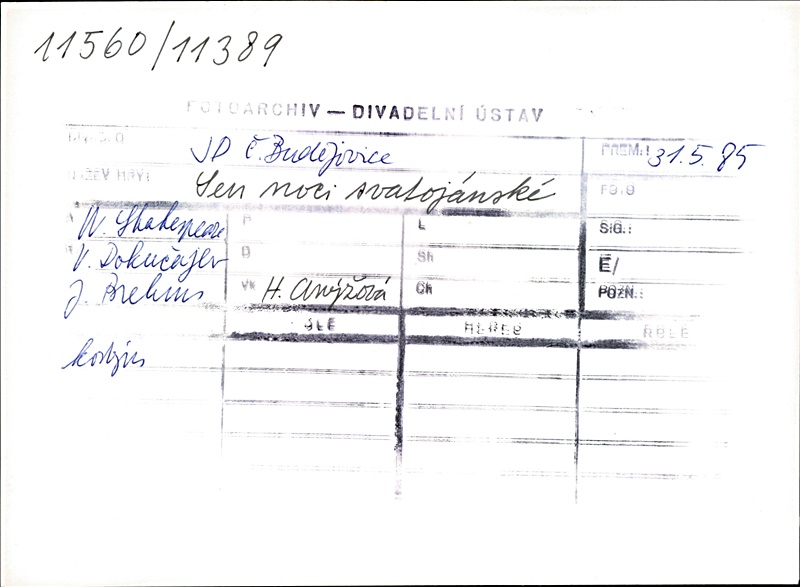 11560/11389
FOTOARCHIV — DIVADELNÍ ÚSTAV
DIVADLO JD Č. Budějovice PREM.: 31.5.85
NÁZEV HRY: Sen noci svatojánské FOTO
A W. Shakespeare P L SIG.:
V. Dokučajev D Sh E/
J. Brehms Vk H. Anýžová Ch POZN.:
HEREC ROLE
kostým